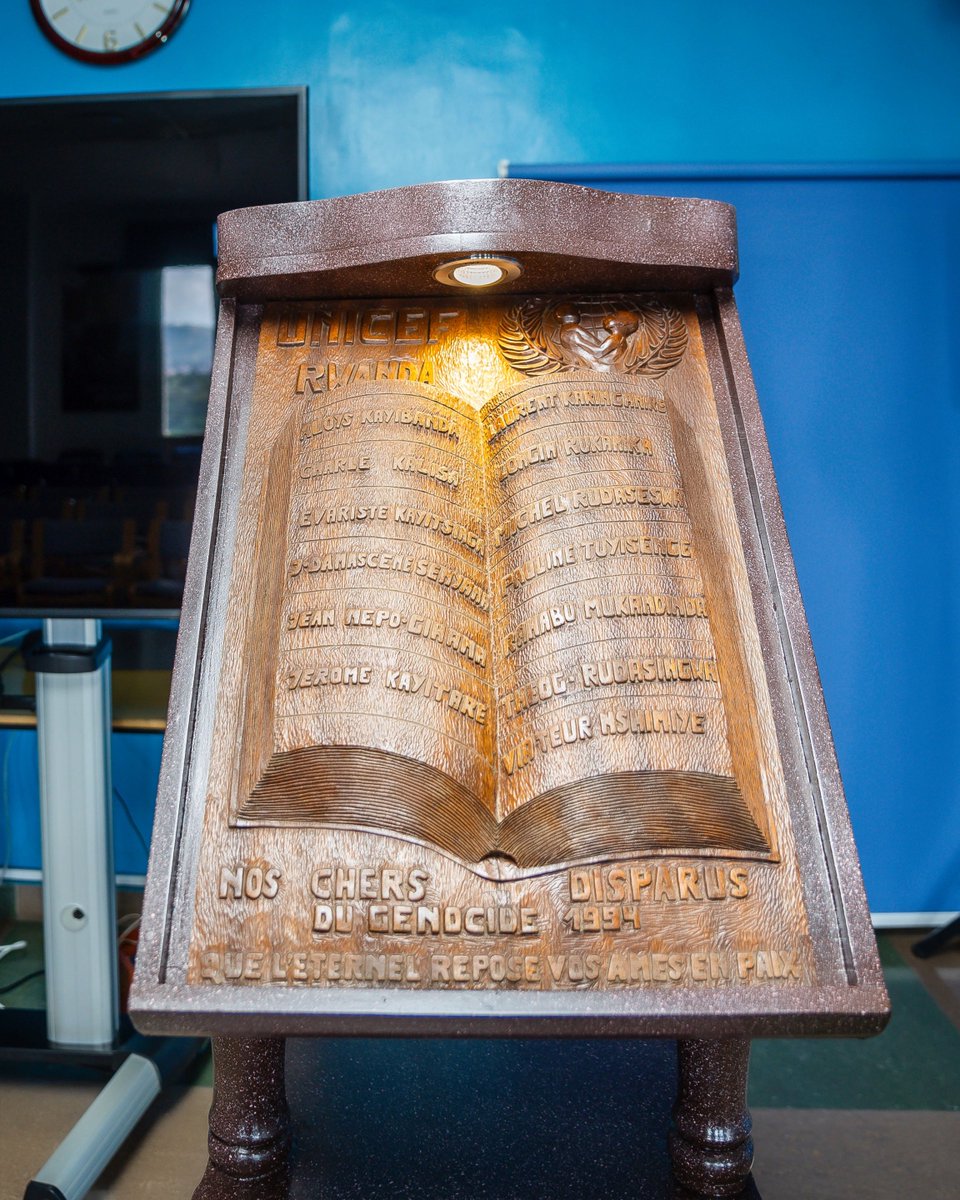 6
UNICEF
RWANDA
ALOYS KAYIBANDA
CHARLE KALISA
EVARISTE KAYITSINGA
J-DAMASCENE
JEAN NEPO-GIRAMA
JEROME KAYITARE
LAURENT
RUKANIKA
MICHEL RUDASESWA
PAULINE TUYISENGE
MUKANDINDA
THEOG- RUDASINGWA
VIATEUR NSHIMIYE
NOS CHERS DISPARUS
DU GENOCIDE 1994
QUE L'ETERNEL REPOSE VOS AMES EN PAIX